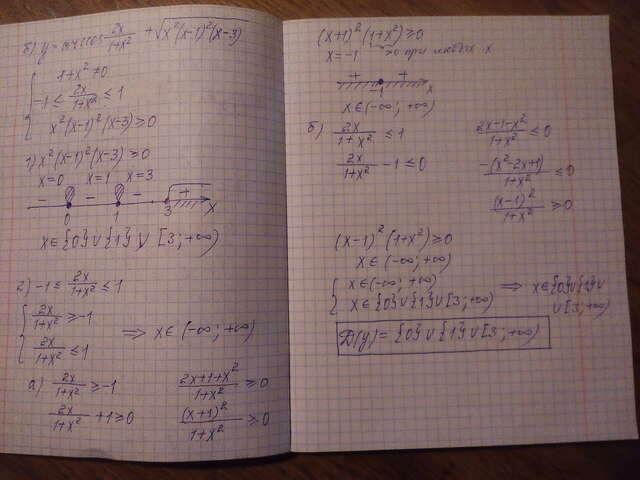 б) y = arccos 2x/(1+x²) + √(x²(x-1)²(x-3))
{ 1+x² ≠ 0
-1 ≤ 2x/(1+x²) ≤ 1
x²(x-1)²(x-3) ≥ 0
1) x²(x-1)²(x-3) ≥ 0
x=0 x=1 x=3
- - - +
0 1 3 x
x∈{0}∪{1}∪[3; +∞)
2) -1 ≤ 2x/(1+x²) ≤ 1
{ 2x/(1+x²) ≥ -1
2x/(1+x²) ≤ 1
⇒ x∈(-∞; +∞)
а) 2x/(1+x²) ≥ -1
2x/(1+x²) + 1 ≥ 0
(2x+1+x²)/(1+x²) ≥ 0
(x+1)²/(1+x²) ≥ 0
(x+1)²(1+x²) ≥ 0
x = -1 >0 при любых x
+ +
-1 x
x∈(-∞; +∞)
б) 2x/(1+x²) ≤ 1
2x/(1+x²) - 1 ≤ 0
(2x-1-x²)/(1+x²) ≤ 0
-(x²-2x+1)/(1+x²) ≤ 0
(x-1)²/(1+x²) ≥ 0
(x-1)²(1+x²) ≥ 0
x∈(-∞; +∞)
{ x∈(-∞; +∞)
x∈{0}∪{1}∪[3; +∞)
⇒ x∈{0}∪{1}∪
∪[3; +∞)
D(y) = {0}∪{1}∪[3; +∞)